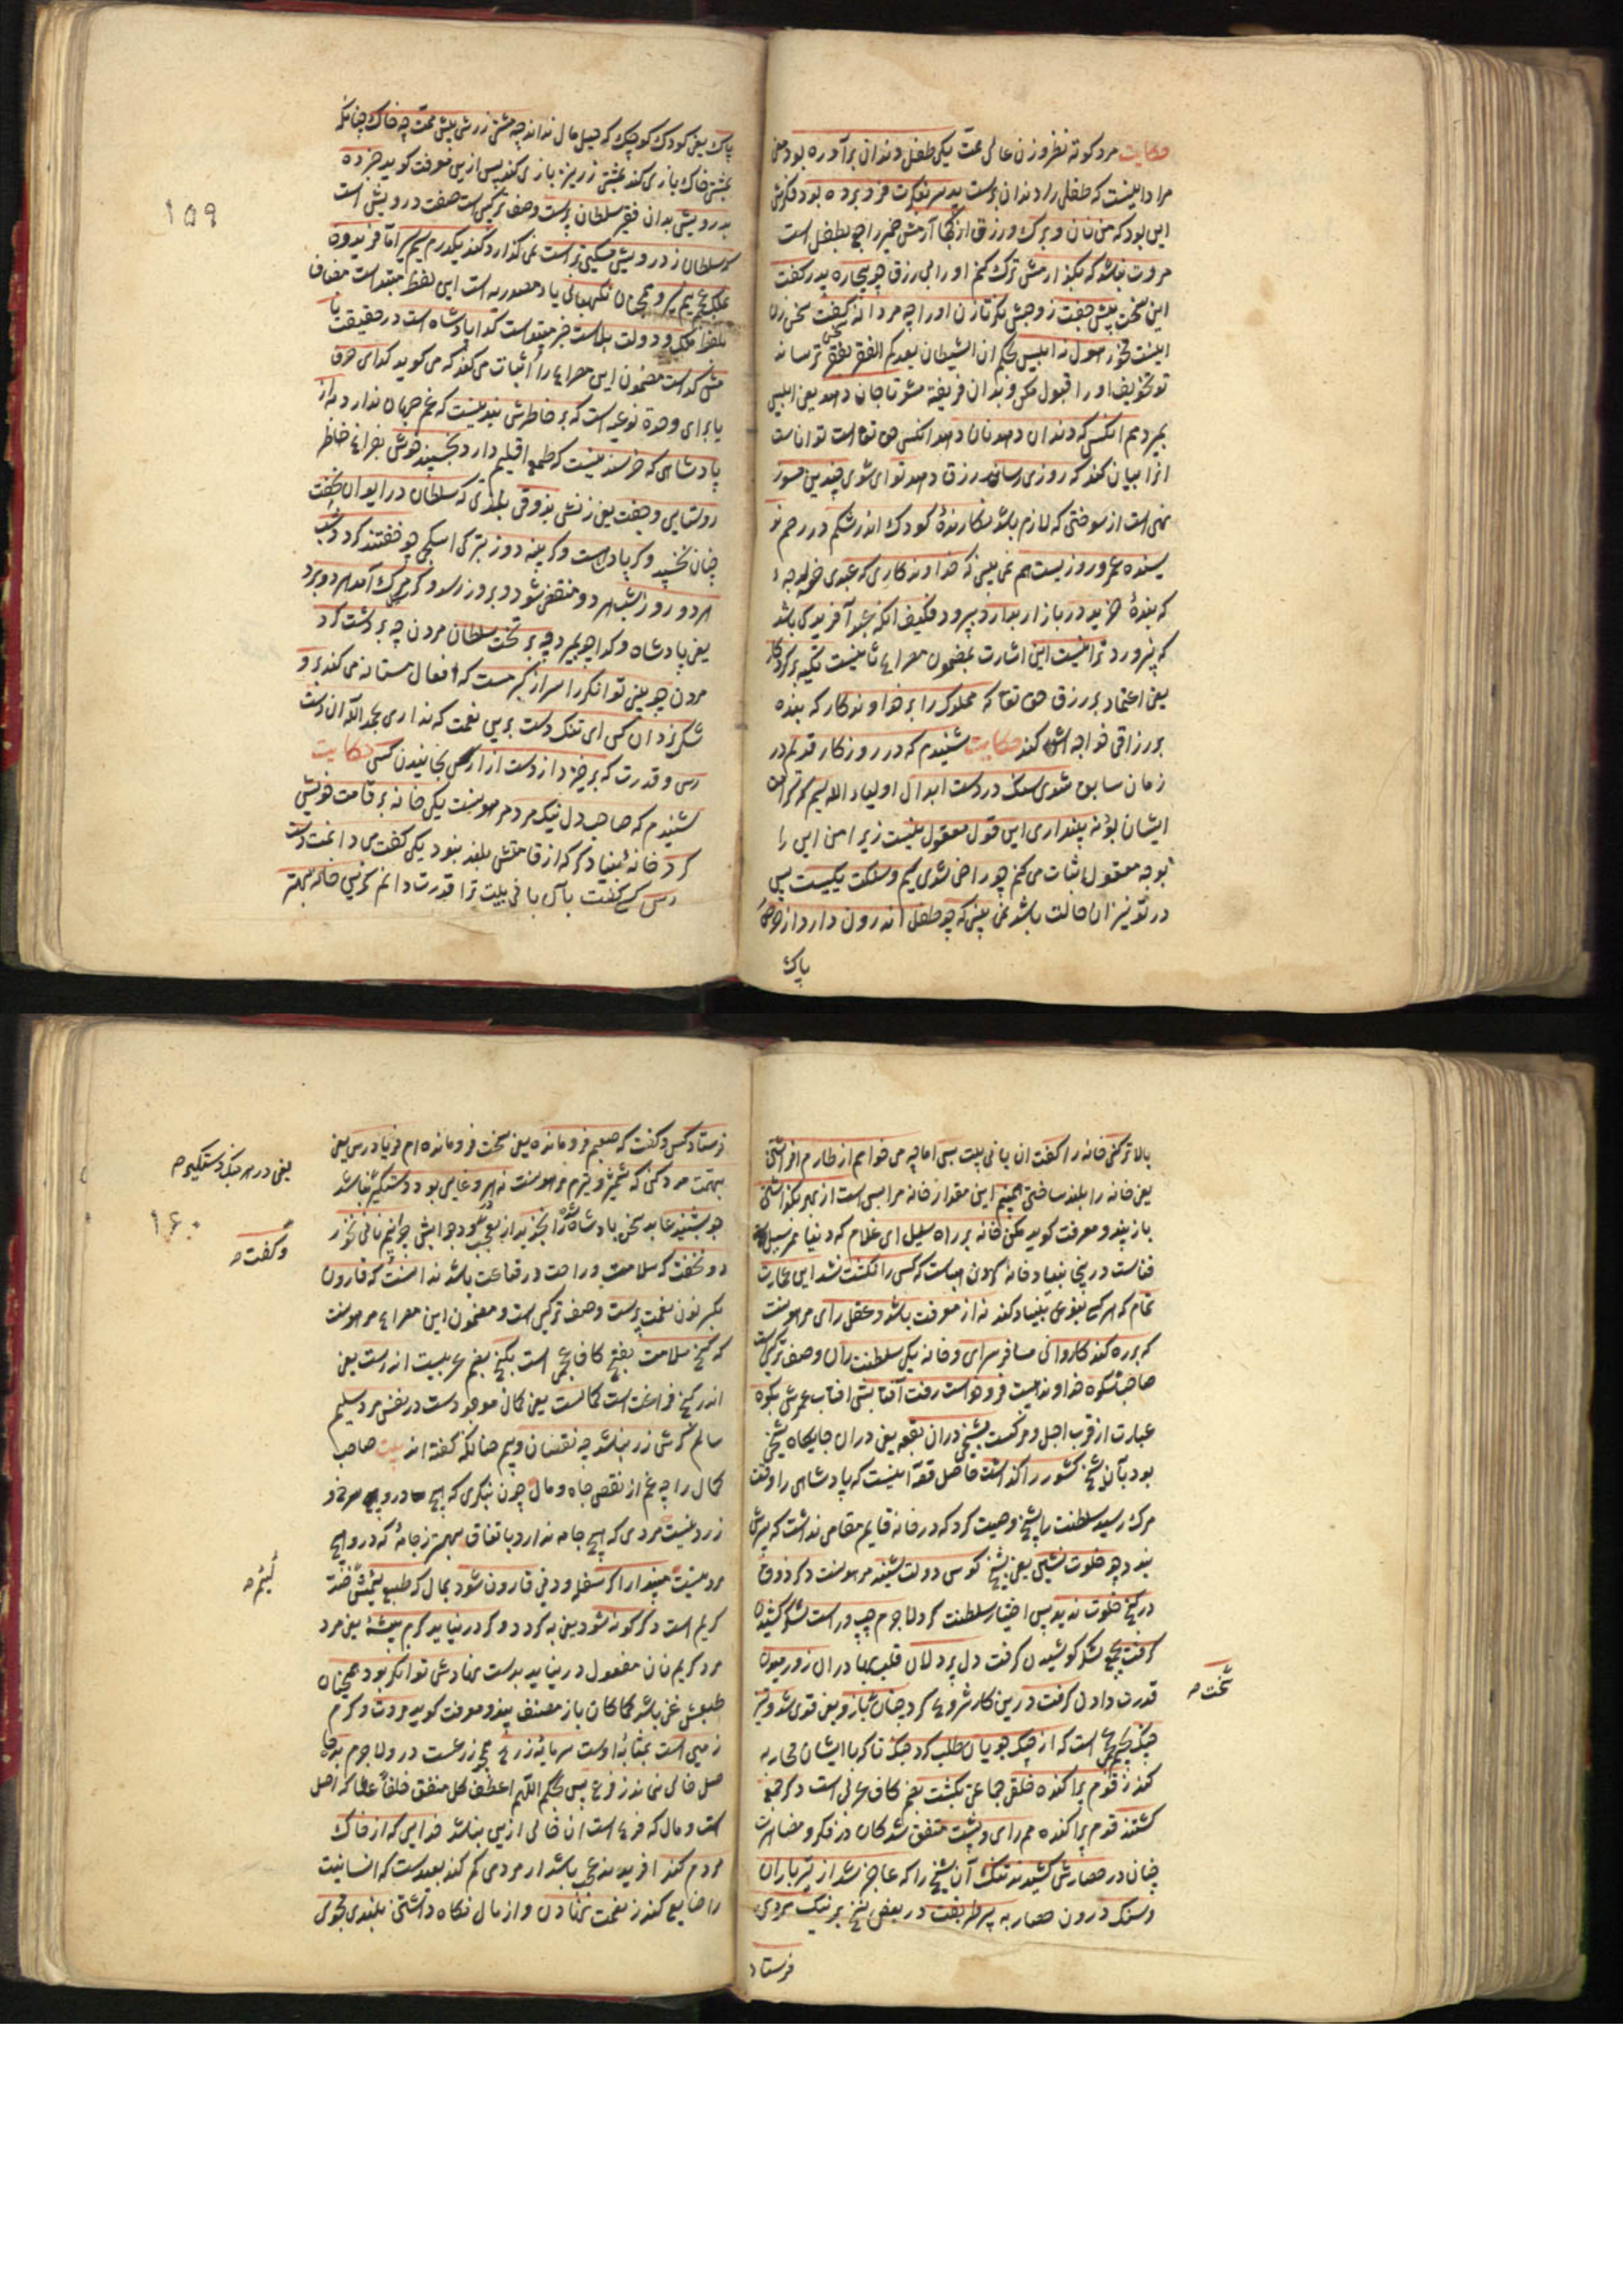 حکایت مرد کوته نظر و زن عالی همت یکی طفل دندان برآورده بود یعنی
مراد اینست که طفلی را دندان رست پدر سر بفکرت فرو برده بود و فکرش
این بود که من نان و برک و رزق از کجا آرمش ضمیر راجع بطفل است
مروت نباشد که بگذارمش ترک کنم او را بی رزق چو بیچاره پدر گفت
این سخن پیش جفت زوجش نکر تا زن او را چه مردانه گفت سخن زن
اینست مخور هول ز ابلیس بحکم ان الشیطان یعدکم الفقر یعنی ترساند
تو تخویف او را قبول مکن و بدان فریفته مشو تا جان دهد یعنی ابلیس
بمیرد هم آنکس که دندان دهد نان دهد آنکس حق تعالی است تواناست
آنرا بیان کند که روزی رساند رزق دهد تو ای شوی چندین مسوز
نهی است از سوختن که لازم باشد نگارندهٔ کودک اندر شکم در رحم نو
یسنده عمر و روزیست هم نمی بینی که خداوندکاری که عبدی خرید
که بندهٔ خرید در بازار بدارد بپرورد فکیف آنکه عبد آفرید کی باشد
که نپرورد ترا نیست این اشارت بمضمون مصراع ثانیست تکیه بر کردکار
یعنی اعتماد بر رزق حق تعا که مملوک را بر خداوندکار که بنده
بر رزاقی خواجه اش کند حکایت شنیدم که در روزکار قدیم در
زمان سابق شدی سنک در دست ابدال اولیاء الله سیم
ایشان بود نه پنداری این قول معقول نیست زیرا من این را
بوجه معقول اثبات می کنم چو راضی شدی سیم و سنکت یکیست پس
در تو نیز ان حالت باشد نمی بینی که چو طفل اندرون دارد از حرص
پاک
پاک یعنی کودک کوچک که میل مال نداند چه مشتی زرش پیش همت چه خاک چنانکه
بمشتی خاک بازی کند بمشتی زر نیز بازی کند پس ازین معرفت کوید خبر ده
بدرویش بدان فقیر سلطان پرست وصف ترکیبی است صفت درویش است
که سلطان ز درویش مسکین تر است نمی گذارد کند یکدرم سیم سیر اما فریدون
بملک عجم نیم سیر و همچنان نکهبانی یاء مصدریه است این لفظ مبتداست مضاف
بلفظ ملک و دولت بلاست خبر مبتداست کدا پادشاه است در حقیقت
مثل کداست مضمون این مصراع را اثبات می کند که می کوید کدای حرف
یا برای وحدة نوعیه است که بر خاطرش بند نیست که غم جهان ندارد به از
پادشاهی که خرسند نیست که طمع اقلیم دارد بخسپند خوش بفراغ خاطر
روستایی و جفت یعنی زنش بذوقی بلذتی که سلطان در ایوان نخفت
چنان نخسپد و کر پادشاه است و کر پنبه دوز بتر کی اسکجی چو خفتند کردد شب
هر دو روز شب هر دو منقضی شود و بروز رسد و کر مرک آمد هر دو برد
یعنی پادشاه و کدا چو بمیرد چه بر تخت سلطان مردن چه بر دشت کرد
مردن چو بینی توانکر را سر از کبر مست که افعال مستانه می کند برو
شکر یزدان کن ای تنک دست برین نعمت که نداری بحمد الله آن دست
رس و قدرت که برخیزد از دست آزار کس رنجانیدن کسی حکایت
شنیدم که صاحب دل نیک مرد مر موست یکی خانه بر قامت خویش
کرد خانهٔ بنیاد کر که از قامتش بلند نبود یکی کفت می دانمت دست
رس کسی کفت با آن بانی بیت ترا قدرت دانم کزین خانه بهتر
۱۵۹
بالاتر کنی خانه را کفت ان بانی بیت بس اما چه می خواهم از طارم افراشتن
یعنی خانه را بلند ساختن همینم این مقدار خانه مرا بس است از بهر بگذاشتن
باز پند و معرفت کوید مکن خانه بر راه سیل ای غلام که دنیا ممر سیل
فناست درینجا بنیاد خانهٔ کردن است که کس را نکشت شد این عمارت
تمام که هر کسی بنوعی بنیاد کند نه از معرفت باشد و عقل رای مر موست
که بر ره کند کاروانی مسافر سرای و خانه یکی سلطنت ران وصف ترکیبی است
صاحب شکوه خداوند هیبت فرو خواست رفت آفتابش افتاب عمرش بکوه
عبارت از قرب اجل و مرکست بشیخی در ان بقعه یعنی در ان جایکاه شیخی
بود بآن شیخ کشور را کذاشت حاصل قصه اینست که پادشاهی را وقت
مرک رسید سلطنت با شیخ وصیت کرد که در خانه قایم مقامی نداشت که پسرش
نبود چو خلوت نشین یعنی شیخ کوس دولت شنید مر موست دکر ذوق
در کنج خلوت ندید پس اختیار سلطنت کرد لا جرم چپ و راست لشکر کشیدن
کرفت بجمع لشکر کوشیدن کرفت دل پر دلان قلب بهادران زو رمیدن
قدرت دادن کرفت درین کار شروع کرد چنان سخت بازو یعنی قوی شد و تیز
جنک است که از جنک جویان طلب کرد جنک تا که با ایشان محاربه
کند ز قوم پراکنده خلقی جماعتی بکشت بضم کاف عربی است دکر جمع
کشتند قوم پراکنده هم رای و پشت متفق شد کان در فکر و مضاهرت
چنان در حصارش کشیدند تنک آن شیخ را که عاجز شد از تیر باران
و سنک درون حصار به پیر طریقت در بعض نسخ بر نیک مردی
فرستاد
سخت صح
فرستاد کس و کفت که صعبم فرو مانده یعنی سخت فرو مانده ام فریاد رس یعنی
بهمت مدد کن که شمشیر و تیرم مر موست نه در هر وغایی بود دستکیر نباشد
چو بشنید عابد سخن پادشاه را بخندید از تعجب و در جوابش چرا نیم نانی نخورد
و نخفت که سلامت و راحت در قناعت باشد ندانست که قارون
بکسر نون نعمت پرست وصف ترکیبی است و مضمون این مصراع مر موست
که کنج سلامت بفتح کاف عجمی است بکنج بضم عربیست اندرست یعنی
اندر کنج فراغت است کمالست یعنی کمال موجودست در نفس مرد سلیم
سالم کرش زر نباشد چه نقصان و بیم چنانکه گفته اند بیت صاحب
کمال را چه غم از نقص جاه و مال چون بنکری که هیچ
زر نیست مردی که هیچ جامه ندارد باتفاق بهتر ز جامهٔ که درو هیچ
مرد نیست مپندار اگر سفله و دنی قارون شود بمال که طبع لئیمش ضد
کریم است دکر کونه شود یعنی به کردد و کر در نیابد کرم پیشهٔ یعنی مرد
مرد کریم نان مفعول در نیابد بدست نهادش توانکر بود همچنان
طبعش غنی باشد کما کان باز مصنف پند و معرفت کوید مروت و کرم
زمین است بمثابهٔ اوست سرمایه زرع بده
اصل خالی نماند ز فرع پس بحکم اللهم اعط کل منفق خلفا عطا که اصل
است و مال که فرع است ان خالی ازین نباشد خدایی که از خاک
مردم کند آفریند عجب باشد ار مردمی کم کند بعیدست که انسانیت
را ضایع کند ز نعمت نهادن و از مال نکاه داشتن بلندی مجوی
یعنی در هر جنک دستکیر صح
وکفت صح
لئیم صح
۱۶۰